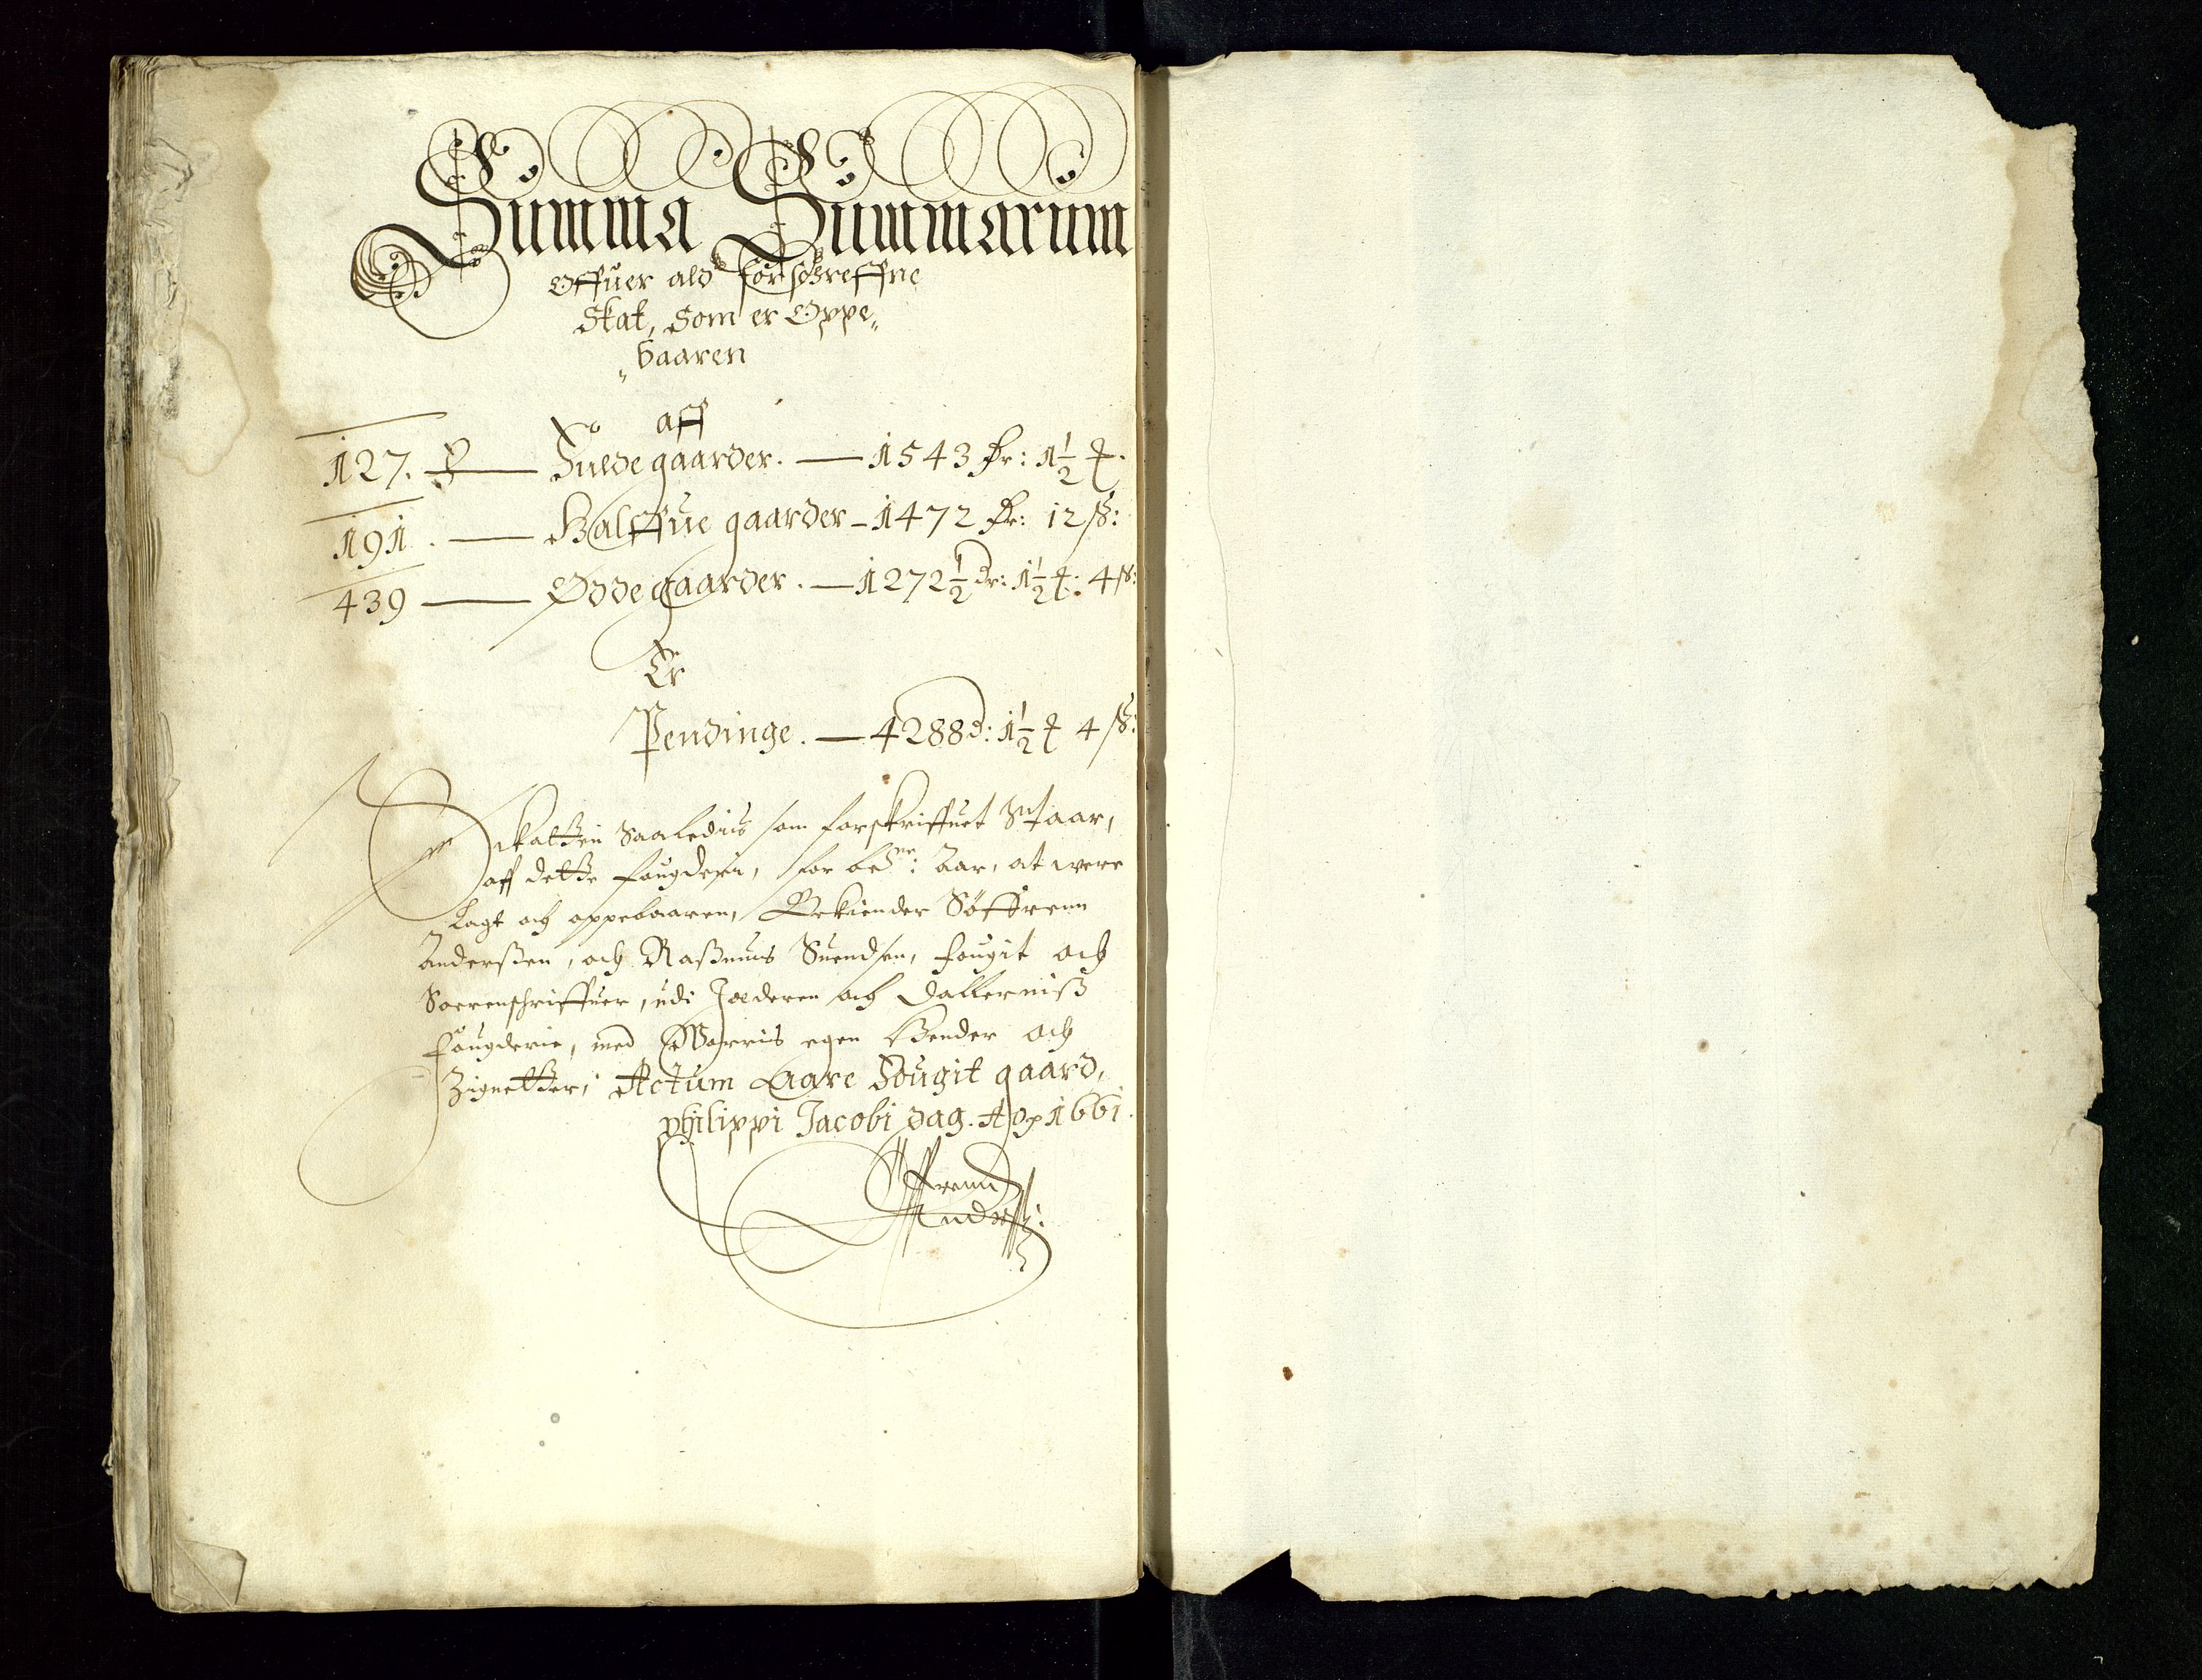 Summa Summarum
Offuer ald forschreffne
Skat, Som er Oppe„
„baaren
aff
127. — Fulde gaarder. — 1543 Dr: 1½
191. — Halffue gaarder – 1472 Dr: 12 ß:
439 — Ødde gaarder. — 1272½ Dr: 1½ : 4 ß:
Er
Pendinge. — 4288 d: 1½ 4 ß:
Skatten Saaledis som forskriffuet Staar,
aff dette fougderi, for bedne: Aar, at were
Lagt och oppebaaren, Bekiender Søffrenn
Anderßen, och Raßmus Suendsen, fougit och
Sorenschriffuer, udi Jæderen och Dallerniß
fougderie, med Worris egen Hender och
Zignetter; Actum Aare fougit gaard,
philippi Jacobi dag. Ao 1661.
Søffrenn
Anderß: